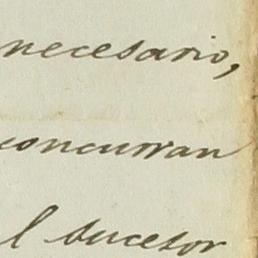 necesario,
concurran
l sucesor